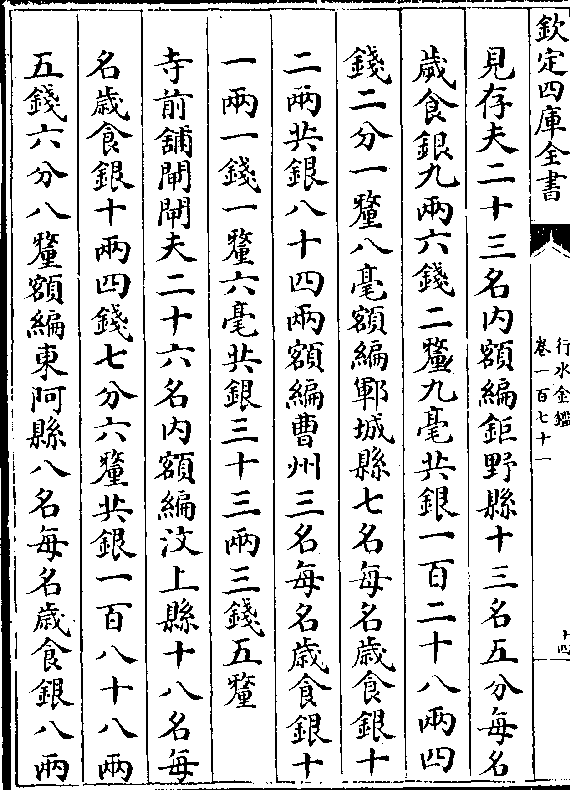 欽定四庫全書
行水金鑑
卷一百七十一
十四
見存夫二十三名内額編鉅野縣十三名五分每名
歲食銀九兩六錢二釐九毫共銀一百二十八兩四
錢二分一釐八毫額編鄆城縣七名每名歲食銀十
二兩共銀八十四兩額編曹州三名每名歲食銀十
一兩一錢一釐六毫共銀三十三兩三錢五釐
寺前舖閘閘夫二十六名内額編汶上縣十八名每
名歲食銀十兩四錢七分六釐共銀一百八十八兩
五錢六分八釐額編東阿縣八名每名歲食銀八兩